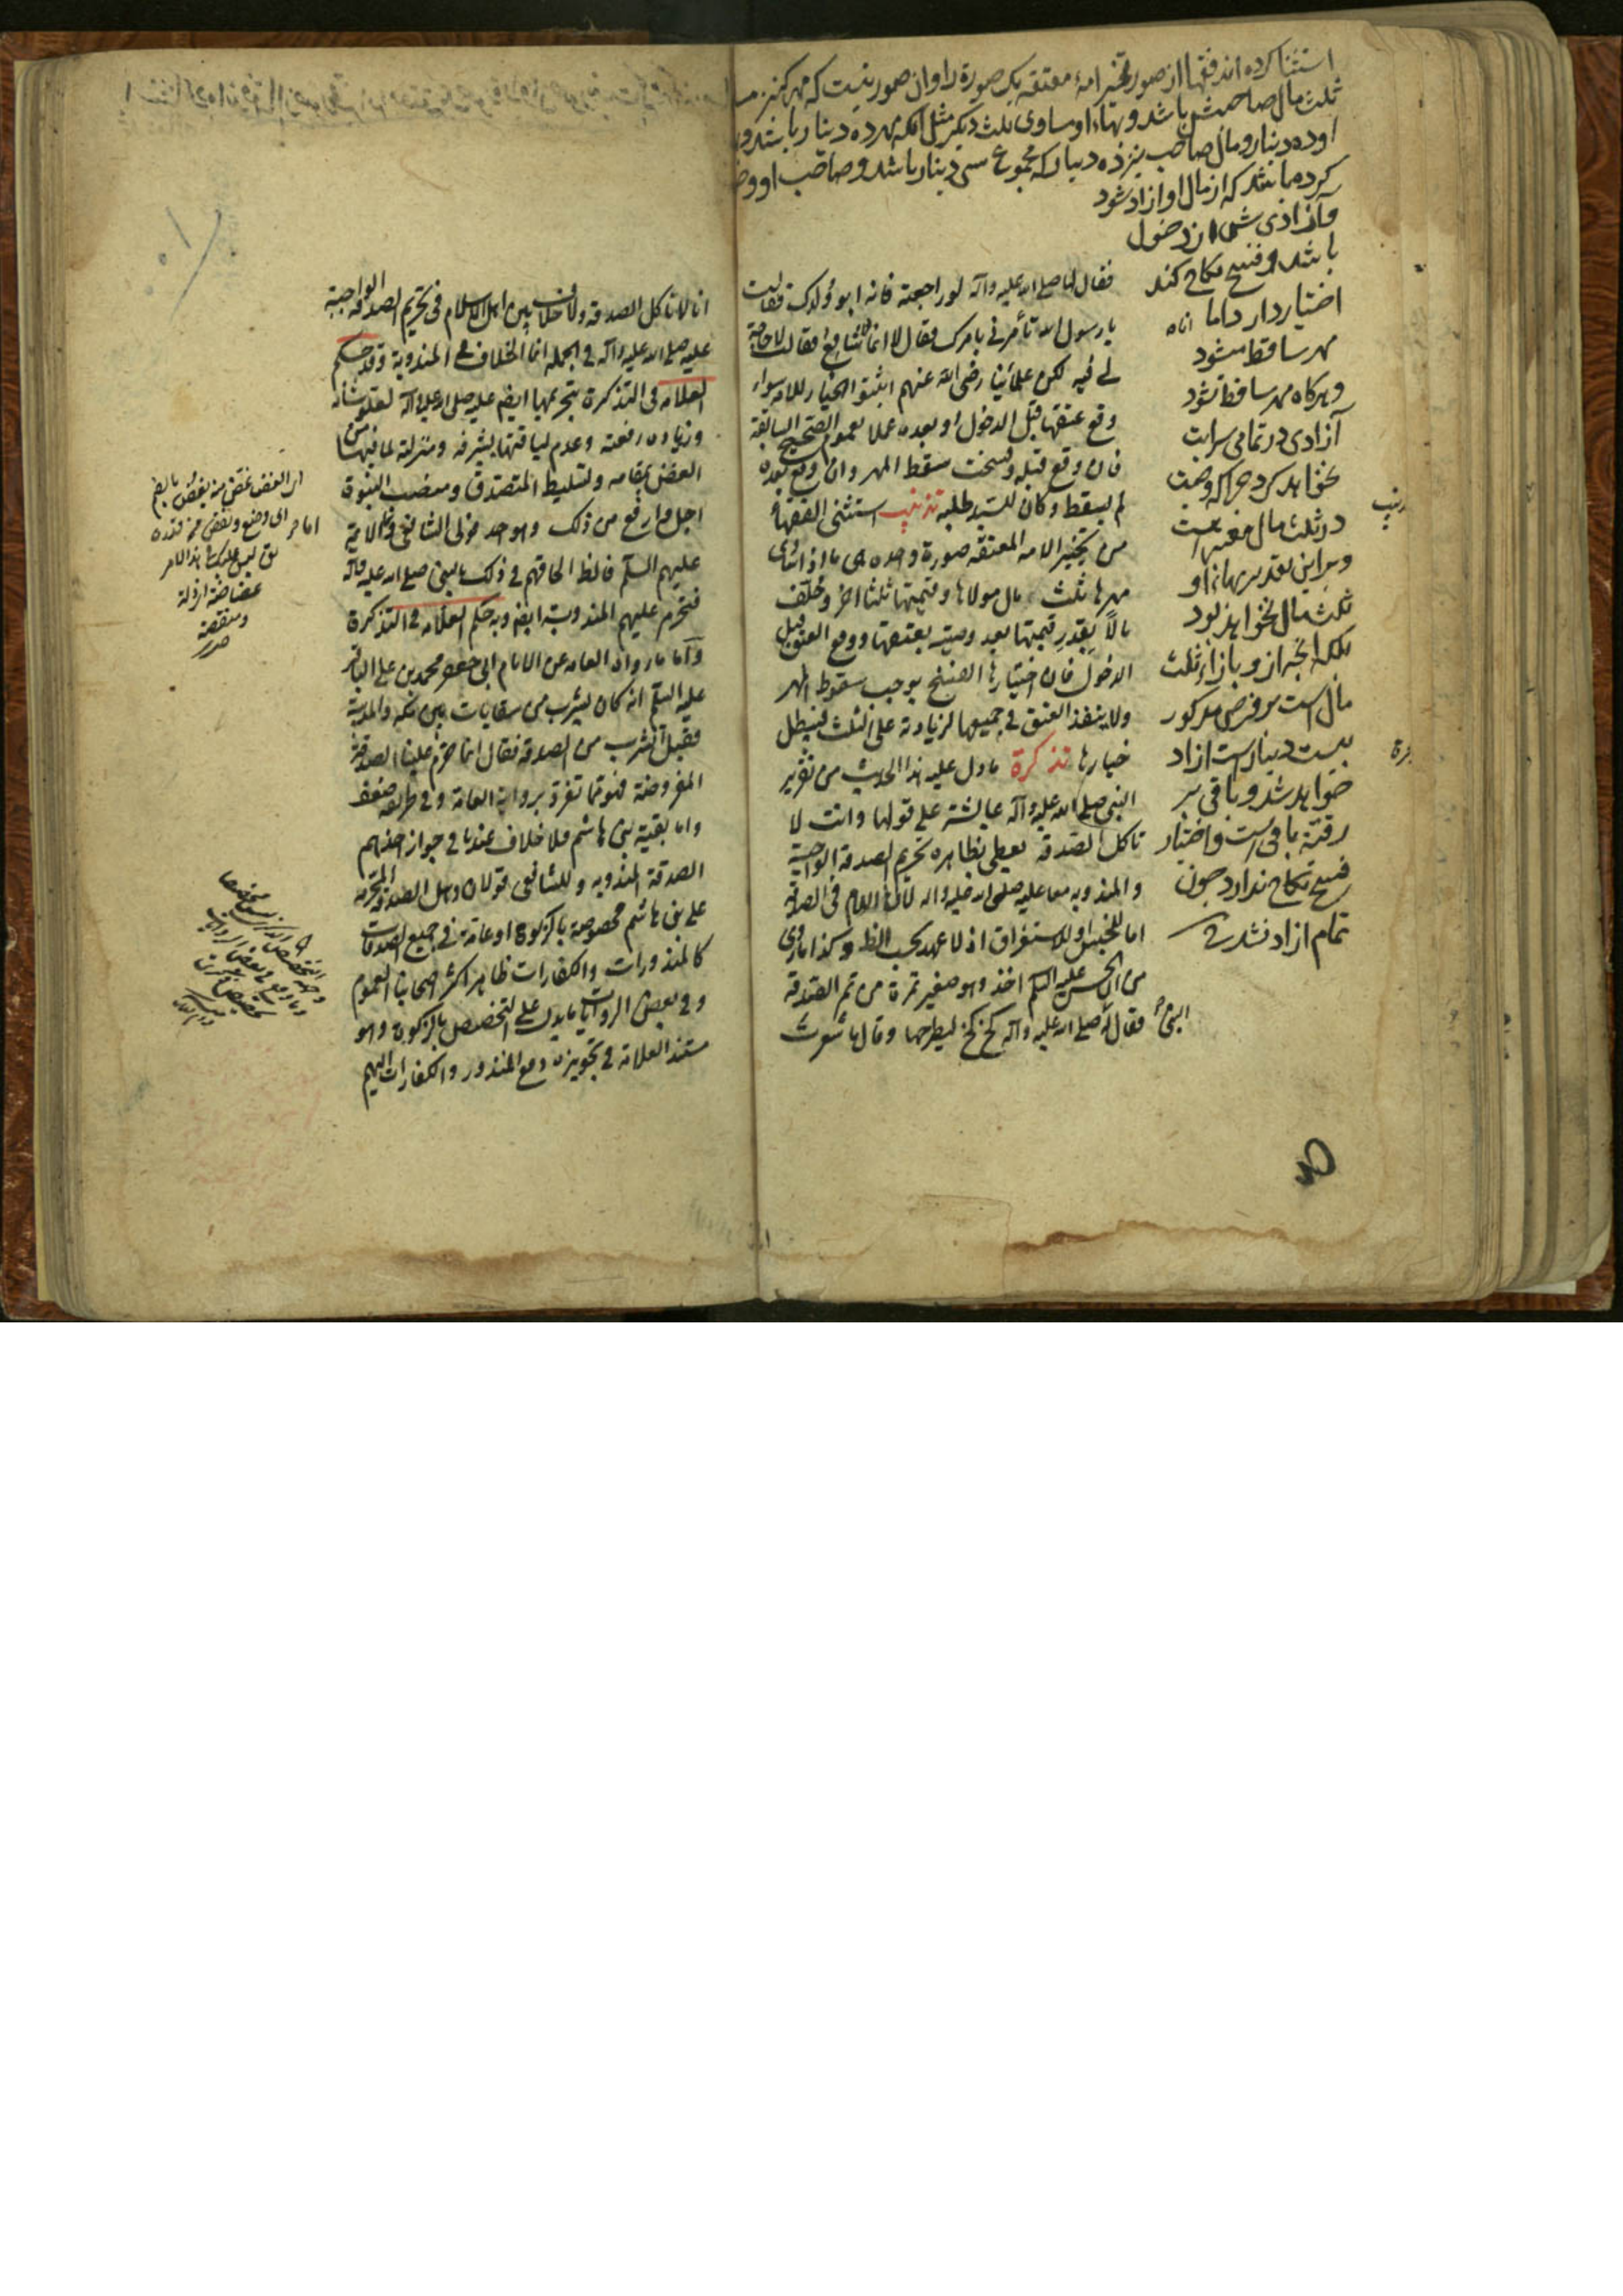 استثنا کرده اند فقها از صور تخیر امهٔ معتقه یک صورة را و ان صور نیست که مهر کنیز
ثلث مال صاحبش باشد و بهاء او مساوی ثلث دیگر مثل آنکه مهر ده دینار باشد و
او ده دینار و مال صاحب نیز ده دینار که مجموع سی دینار باشد و صاحب او
کرده باشد که از مال او ازاد شود
و آزادی پیش از دخول
باشد و فسخ نکاح کند
اختیار دارد اما
مهر ساقط میشود
و هرکاه مهر ساقط شود
آزادی در تمامی سرایت
نخواهد کرد چرا که وصیت
در ثلث مال معتبر است
و براین تقدیر بهاء او
ثلث مال نخواهد بود
بلکه آنچه از و بازاء ثلث
مال است بر فرض مذکور
بیست دینار است ازاد
خواهد شد و باقی بر
رقیّة باقی است و اختیار
فسخ نکاح ندارد چون
تمام ازاد نشد
فقال لها صلی الله علیه وآله لو راجعته فانه ابو ولدک فقالت
یا رسول الله تأمرنی بامرک فقال لا انما انا شافع فقالت لا حاجة
لی فیه لکن علمائنا رضی الله عنهم اثبتوا الخیار للامه سواء
وقع عتقها قبل الدخول او بعده عملا بعموم الصحیح السابقة
فان وقع قبله و فسخت سقط المهر وان وقع بعده
لم یسقط وکان للسید طلبه تذنیب استثنی الفقهاء
من تخییر الامه المعتقه صورة واحده هی ما اذا ساوی
مهرها ثلث مال مولاها وقیمتها ثلثا اخر وخلّف
مالاً بقدر قیمتها بعد وصیته بعتقها ووقع العتق قبل
الدخول فان اختیارها الفسخ یوجب سقوط المهر
ولا ینفذ العتق فی جمیعها لزیادته علی الثلث فیبطل
خیارها تذکرة ما دل علیه هذا الحدیث من تقریر
النبی صلی الله علیه وآله عایشة علی قولها وانت لا
تاکل الصدقه یعطی بظاهره تحریم الصدقة الواجبة
والمندوبه معا علیه صلی الله علیه واله لان اللام فی الصدقة
اما للجنس او للاستغراق اذ لا عهد بحسب الظ وکذا ما روی
من ان الحسن علیه السلم اخذ وهو صغیر تمرة من تمر الصدقة
فقال له صلی الله علیه وآله کخ کخ لیطرحها وقال ما شعرت
انا لا نأکل الصدقه ولا خلاف بین اهل الاسلام فی تحریم الصدقه الواجبة
علیه صلی الله علیه وآله فی الجمله انما الخلاف فی المندوبة وقد حکم
العلامه فی التذکرة بتحریمها ایضا علیه صلی الله علیه وآله لعلو شأنه
وزیاده رفعته وعدم لیاقتها بشرفه ومنزلته لما فیها من
الغض بمقامه وتسلیط المتصدق ومنصب النبوة
اجل وارفع من ذلک وهو احد قولی الشافعی
علیهم السلم فالظ الحاقهم فی ذلک بالنبی صلی الله علیه وآله
فتحرم علیهم المندوبة ایضا وبه حکم العلامه فی التذکرة
واما ما رواه العامه عن الامام ابی جعفر محمد بن علی الباقر
علیه السلم انه کان یشرب من سقایات بین مکه والمدینة
فقیل له اتشرب من الصدقة فقال انما حرم علینا الصدقة
المفروضة فهو مما تفرد بروایة العامة وفی طریقه ضعف
واما بقیة بنی هاشم فلا خلاف عندنا فی جواز اخذهم
الصدقة المندوبه وللشافعی قولان وهل الصدقة المحرمه
علی بنی هاشم مخصوصة بالزکوة او عامة فی جمیع الصدقات
کالمنذورات والکفارات ظاهر اکثر اصحابنا العموم
وفی بعض الروایات ما یدل علی التخصیص بالزکوة وهو
مستند العلامة فی تجویزه دفع المنذور والکفارات الیهم